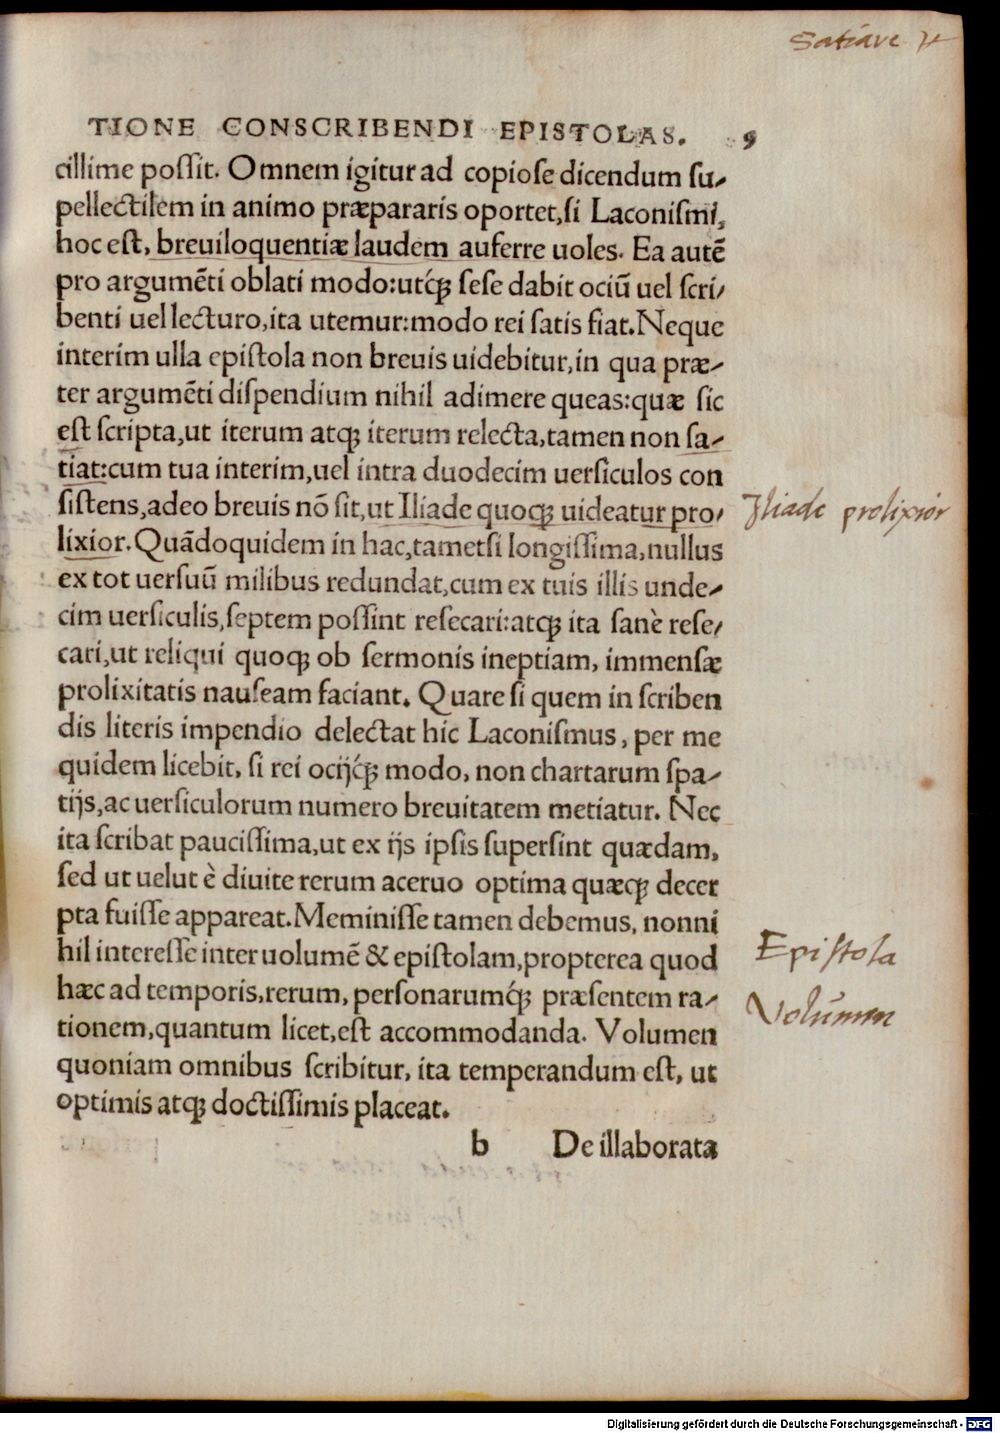 Satiare
TIONE CONSCRIBENDI EPISTOLAS. 9
cillime poſſit. Omnem igitur ad copioſe dicendum ſu-
pellectilem in animo præpararis oportet, ſi Laconiſmi,
hoc eſt, breuiloquentiæ laudem auferre uoles. Ea autē
pro argumēti oblati modo: utcꝗ́; ſeſe dabit ociū uel ſcri-
benti uel lecturo, ita utemur: modo rei ſatis fiat. Neque
interim ulla epiſtola non breuis uidebitur, in qua præ-
ter argumēti diſpendium nihil adimere queas: quæ ſic
eſt ſcripta, ut iterum atqꝫ iterum relecta, tamen non ſa-
tiat: cum tua interim, uel intra duodecim uerſiculos con
ſiſtens, adeo breuis nō ſit, ut Iliade quoqꝫ uideatur pro-
Iliade prolixior
lixior. Quādoquidem in hac, tametſi longiſſima, nullus
ex tot uerſuū milibus redundat, cum ex tuis illis unde-
cim uerſiculis, ſeptem poſſint reſecari: atqꝫ ita ſanè reſe-
cari, ut reliqui quoqꝫ ob ſermonis ineptiam, immenſæ
prolixitatis nauſeam faciant. Quare ſi quem in ſcriben
dis literis impendio delectat hic Laconiſmus, per me
quidem licebit, ſi rei ocijq́ꝫ modo, non chartarum ſpa-
tijs, ac uerſiculorum numero breuitatem metiatur. Nec
ita ſcribat pauciſſima, ut ex ijs ipſis ſuperſint quædam,
ſed ut uelut è diuite rerum aceruo optima quæqꝫ decer
pta fuiſſe appareat. Meminiſſe tamen debemus, nonni
hil intereſſe inter uolumē & epiſtolam, propterea quod
Epiſtola
hæc ad temporis, rerum, perſonarumq́ꝫ præſentem ra-
Volumen
tionem, quantum licet, eſt accommodanda. Volumen
quoniam omnibus ſcribitur, ita temperandum eſt, ut
optimis atqꝫ doctiſſimis placeat.
b De illaborata
Digitalisierung gefördert durch die Deutsche Forschungsgemeinschaft - DFG